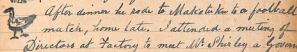 After dinner he rode to Makotuku to a football
match, home late. I attended a meeting of
Directors at Factory to meet Mr Shirley a Govern